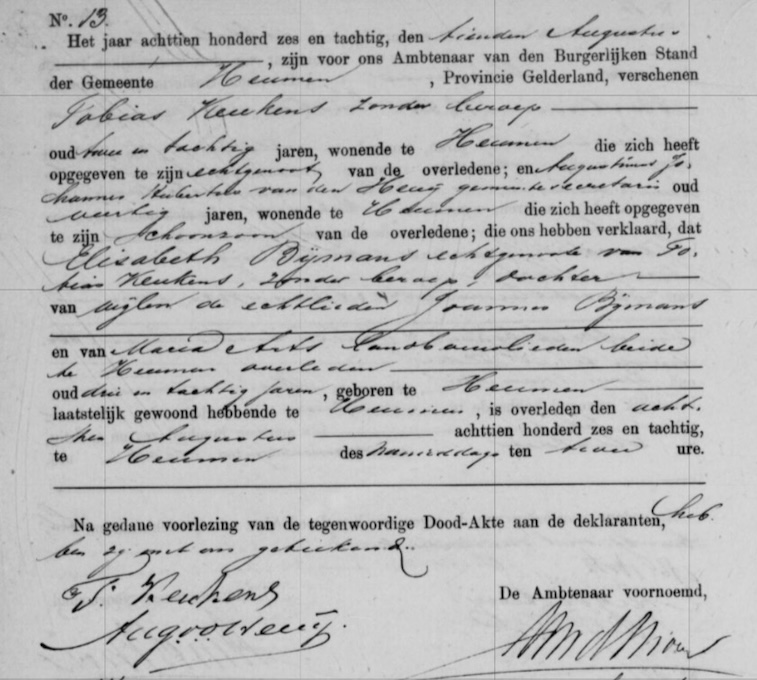 No. 13.
Het jaar achttien honderd zes en tachtig, den tienden Augustus
, zijn voor ons Ambtenaar van den Burgerlijken Stand
der Gemeente Heumen, Provincie Gelderland, verschenen
Tobias Keukens zonder beroep
oud twee en tachtig jaren, wonende te Heumen die zich heeft
opgegeven te zijn echtgenoot van de overledene; en Augustinus Jo-
hannes Hubertus van den Heuij gemeentesecretaris oud
veertig jaren, wonende te Heumen die zich heeft opgegeven
te zijn Schoonzoon van de overledene; die ons hebben verklaard, dat
Elisabeth Bijmans echtgenoote van To-
bias Keukens, zonder beroep, dochter
van wijlen de echtlieden Joannes Bijmans
en van Maria Arts Landbouwlieden beide
te Heumen overleden
oud drie en tachtig jaren, geboren te Heumen
laatstelijk gewoond hebbende te Heumen, is overleden den acht-
sten Augustus achttien honderd zes en tachtig,
te Heumen des namiddags ten twee ure.
Na gedane voorlezing van de tegenwoordige Dood-Akte aan de deklaranten, heb-
ben zij met ons geteekend.
T. Keukens
De Ambtenaar voornoemd,